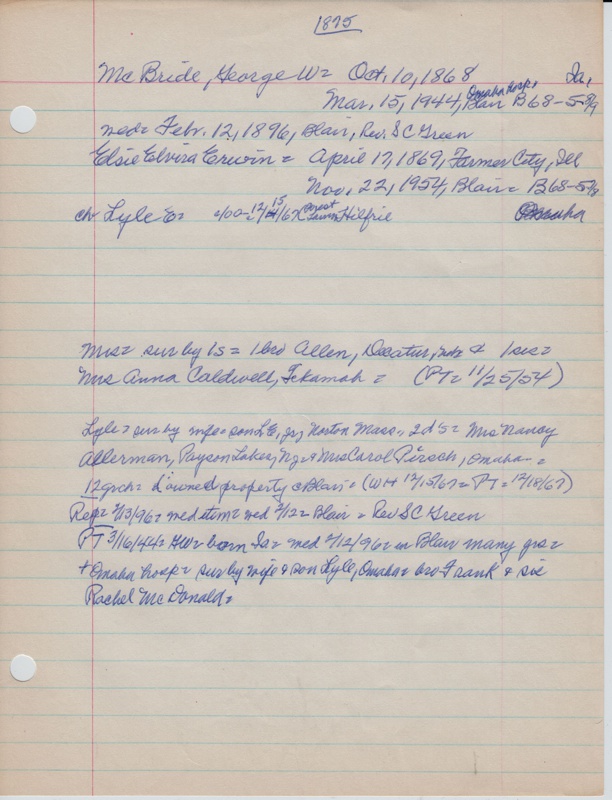 1875
McBride, George W= Oct. 10, 1868 Ia.
Omaha hosp
Mar. 15, 1944, Blair B68-5
med= Febr. 12, 1896, Blair, Rev. S C Green
Elsie Elvira Erwin = April 17, 1869, Farmer City, Ill
Nov. 22, 1954, Blair= B68-5
ch Lyle E= 1900= 12/15/67 Forest Lawn Hilfrie Omaha
Mrs= sur by 1s = 1 bro Allen, Decatur, & 1 sis=
Mrs Anna Caldwell, Tekamah = (PT= 11/25/54)
Lyle= sur by wife= son L E, jr, Norton Mass., 2 d's= Mrs Nancy
Allerman, Payson Lakes, Nj & Mrs Carol Pirsch, Omaha=
12 grch= d owned property c Blair= (WH 12/15/67= PT= 12/18/67)
Rep= 2/13/96= med item= med 2/12= Blair= Rev S C Green
PT 3/16/44= GW= born Ia= med 2/12/96= in Blair many yrs=
+ Omaha hosp= sur by wife & son Lyle, Omaha= bro Frank & sis
Rachel McDonald=